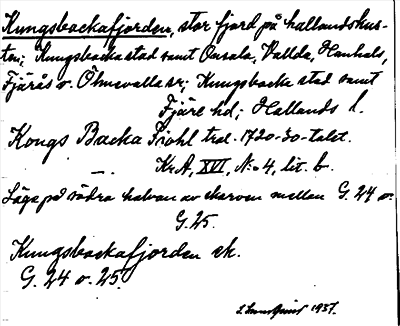 Kungsbackafjorden, stor fjord på hallandskus-
ten; Kungsbacka stad samt Onsala, Vallda, Hanhals,
Fjärås o. Ölmevalla sr; Kungsbacka stad samt
Fjäre hd; Hallands l.
Kongs Backa Fiohl trol. 1720-30-talet.
Kr.A, XVI, N:o 4, lit. b.
Läge på södra halvan av skarven mellan G. 24 o.
G. 25.
Kungsbackafjorden ek.
G. 24 o. 25.
1937.